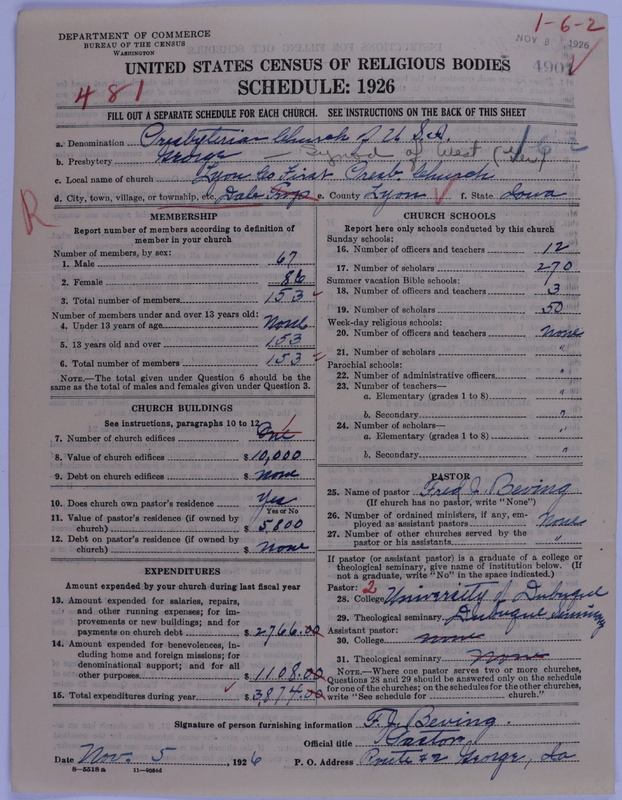 1-6-2
DEPARTMENT OF COMMERCE
BUREAU OF THE CENSUS
WASHINGTON
NOV 8 1926
4901
UNITED STATES CENSUS OF RELIGIOUS BODIES
481
SCHEDULE: 1926
FILL OUT A SEPARATE SCHEDULE FOR EACH CHURCH. SEE INSTRUCTIONS ON THE BACK OF THIS SHEET
a. Denomination Presbyterian Church of U.S.A.
b. Presbytery George — Synod of West
c. Local name of church Lyon Co First Presb Church
d. City, town, village, or township, etc. Dale Twp e. County Lyon f. State Iowa
R
MEMBERSHIP
Report number of members according to definition of member in your church
Number of members, by sex:
1. Male 67
2. Female 86
3. Total number of members 153
Number of members under and over 13 years old:
4. Under 13 years of age None
5. 13 years old and over 153
6. Total number of members 153
NOTE.—The total given under Question 6 should be the same as the total of males and females given under Question 3.
CHURCH BUILDINGS
See instructions, paragraphs 10 to 12
7. Number of church edifices One 1
8. Value of church edifices $ 10,000
9. Debt on church edifices $ None
10. Does church own pastor's residence Yes
Yes or No
11. Value of pastor's residence (if owned by church) $ 5800
12. Debt on pastor's residence (if owned by church) $ None
EXPENDITURES
Amount expended by your church during last fiscal year
13. Amount expended for salaries, repairs, and other running expenses; for improvements or new buildings; and for payments on church debt $ 2766.00
14. Amount expended for benevolences, including home and foreign missions; for denominational support; and for all other purposes $ 1108.00
15. Total expenditures during year $ 3,874.00
CHURCH SCHOOLS
Report here only schools conducted by this church
Sunday schools:
16. Number of officers and teachers 12
17. Number of scholars 270
Summer vacation Bible schools:
18. Number of officers and teachers 3
19. Number of scholars 50
Week-day religious schools:
20. Number of officers and teachers None
21. Number of scholars "
Parochial schools:
22. Number of administrative officers "
23. Number of teachers—
a. Elementary (grades 1 to 8) "
b. Secondary "
24. Number of scholars—
a. Elementary (grades 1 to 8) "
b. Secondary "
PASTOR
25. Name of pastor Fred J. Beving
(If church has no pastor, write "None")
26. Number of ordained ministers, if any, employed as assistant pastors None
27. Number of other churches served by the pastor or his assistants "
If pastor (or assistant pastor) is a graduate of a college or theological seminary, give name of institution below. (If not a graduate, write "No" in the space indicated.)
Pastor: 2
28. College University of Dubuque
29. Theological seminary Dubuque Seminary
Assistant pastor:
30. College none
31. Theological seminary None
NOTE.—Where one pastor serves two or more churches, Questions 28 and 29 should be answered only on the schedule for one of the churches; on the schedules for the other churches, write "See schedule for church."
Signature of person furnishing information F. J. Beving.
Official title Pastor
Date Nov. 5, 1926 P. O. Address Route #2 George, Ia
8—5518a 11—9056d